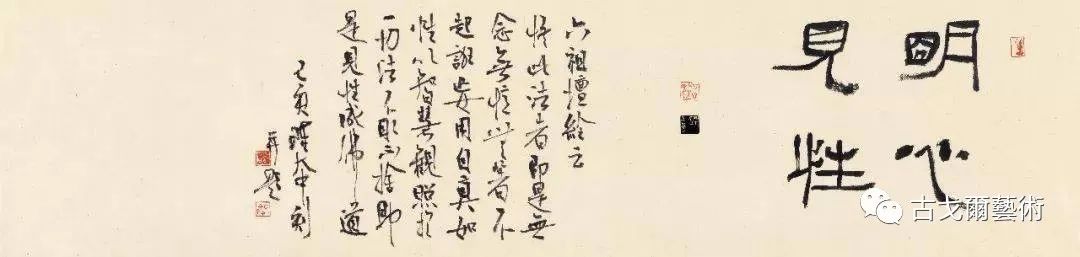 明心
見性
六祖壇經云
悟此法者即是無
念無憶無著不
起誑妄用自真如
性以智慧觀照於
一切法不取不捨即
是見性成佛道
己亥刻
并題
古戈爾藝術